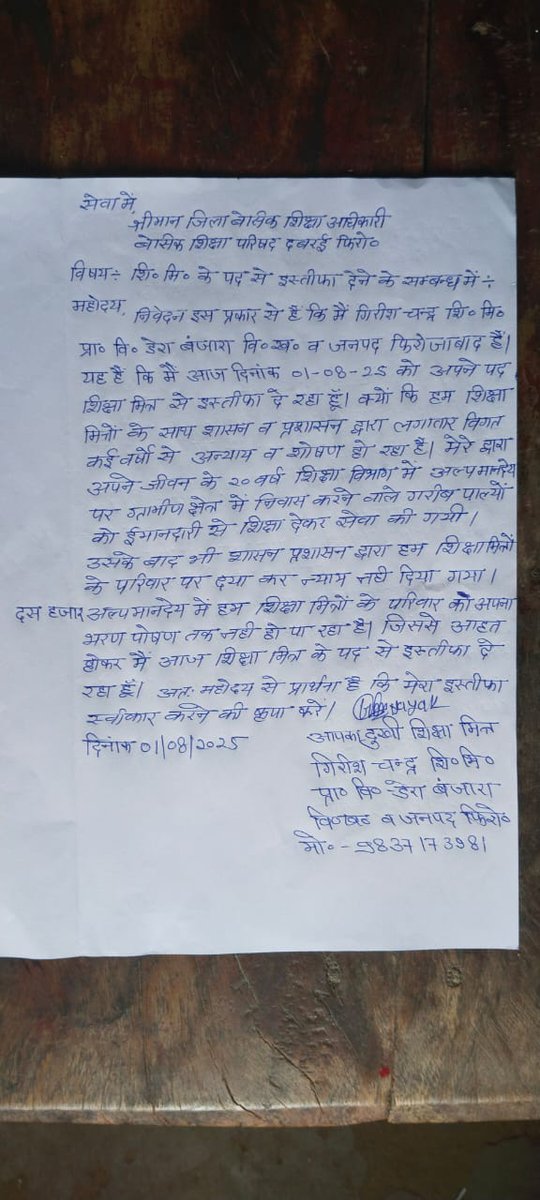 सेवा में,
श्रीमान जिला बेसिक शिक्षा अधिकारी
बेसिक शिक्षा परिषद दबरई फिरो०
विषय÷ शि० मि० के पद से इस्तीफा देने के सम्बन्ध में ÷
महोदय,
निवेदन इस प्रकार से है कि मैं गिरीश चन्द्र शि० मि०
प्रा० वि० डेरा बंजारा वि० ख० व जनपद फिरोजाबाद हूँ।
यह है कि मैं आज दिनांक 01-08-25 को अपने पद
शिक्षा मित्र से इस्तीफा दे रहा हूँ। क्यों कि हम शिक्षा
मित्रों के साथ शासन व प्रशासन द्वारा लगातार विगत
कई वर्षो से अन्याय व शोषण हो रहा है। मेरे द्वारा
अपने जीवन के २० वर्ष शिक्षा विभाग में अल्प मानदेय
पर ग्रामीण क्षेत्र में निवास करने वाले गरीब पाल्यों
को ईमानदारी से शिक्षा देकर सेवा की गयी।
उसके बाद भी शासन प्रशासन द्वारा हम शिक्षा मित्रों
के परिवार पर दया कर न्याय नही दिया गया।
दस हजार अल्प मानदेय में हम शिक्षा मित्रों के परिवार को अपना
भरण पोषण तक नही हो पा रहा है। जिससे आहत
होकर मैं आज शिक्षा मित्र के पद से इस्तीफा दे
रहा हूँ। अतः महोदय से प्रार्थना है कि मेरा इस्तीफा
स्वीकार करने की कृपा करें।
दिनांक 01/08/2025
आपका दुखी शिक्षा मित्र
गिरीश चन्द्र शि० मि०
प्रा० वि०- डेरा बंजारा
व जनपद फिरो०
मो० - 9837173981